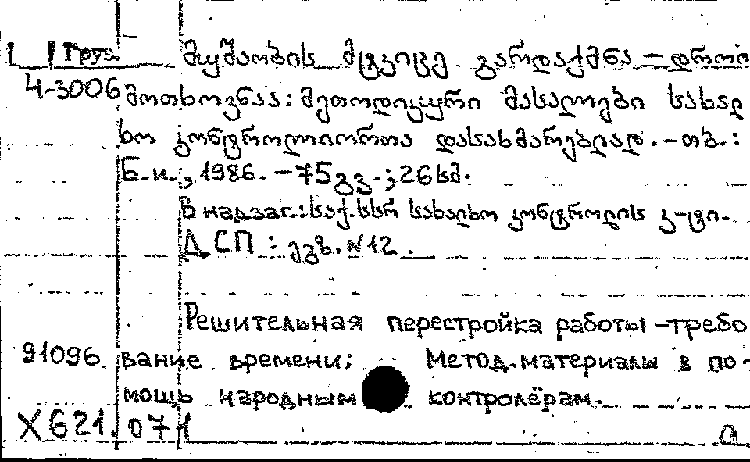 Груз. მუშაობის მტკიცე გარდაქმნა – დროის
4-3006 მოთხოვნაა: მეთოდიკური მასალები სახალ
ხო კონტროლიორთა დასახმარებლად. – თბ.:
Б.и., 1986. – 75გვ.; 26სმ.
В надзаг.: საქ. სსრ სახალხო კონტროლის კ-ტი.
ДСП: ეგზ. N12.
Решительная перестройка работы – требо
91096 вание времени: Метод. материалы в по-
мощь народным контролёрам.
X621.071 П